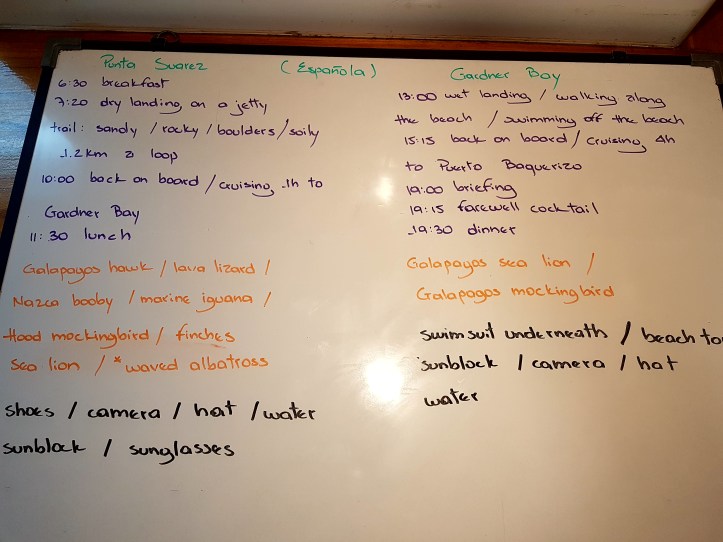 Punta Suarez (Española)
6:30 breakfast
7:20 dry landing on a jetty
trail: sandy / rocky / boulders / soily
1.2km a loop
10:00 back on board / cruising 1h to
Gardner Bay
11:30 lunch
Galapagos hawk / lava lizard /
Nazca booby / marine iguana /
Hood mockingbird / finches
Sea lion / *waved albatross
shoes / camera / hat / water
sunblock / sunglasses
Gardner Bay
13:00 wet landing / walking along
the beach / swimming off the beach
15:15 back on board / cruising 4h
to Puerto Baquerizo
19:00 briefing
19:15 farewell cocktail
19:30 dinner
Galapagos sea lion /
Galapagos mockingbird
swimsuit underneath / beach to
sunblock / camera / hat
water